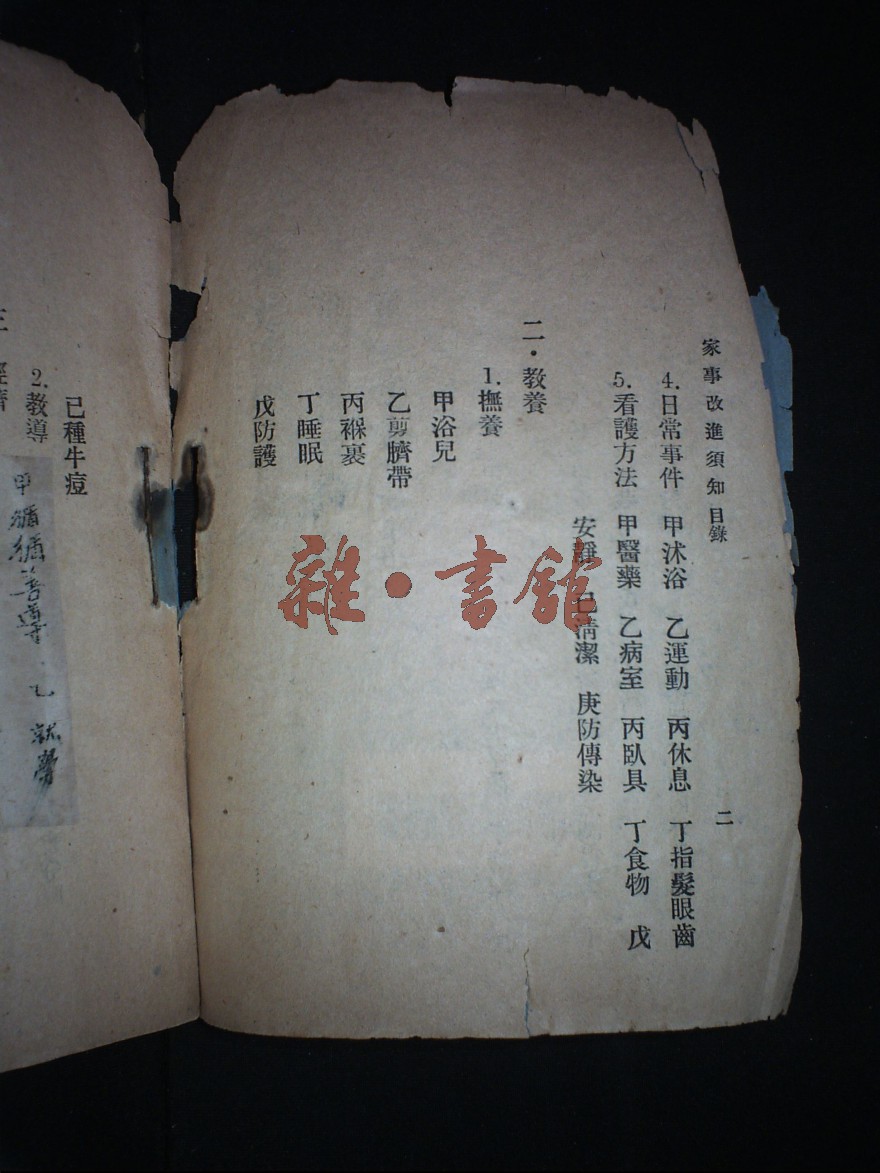 家事改進須知目錄
二
4.日常事件 甲沐浴 乙運動 丙休息 丁指髮眼齒
5.看護方法 甲醫藥 乙病室 丙臥具 丁食物 戊
安靜 己清潔 庚防傳染
二.教養
1.撫養
甲浴兒
乙剪臍帶
丙褓裹
丁睡眠
戊防護
己種牛痘
2.教導
甲 循循善導 乙 就學
三 經濟
雜·書館